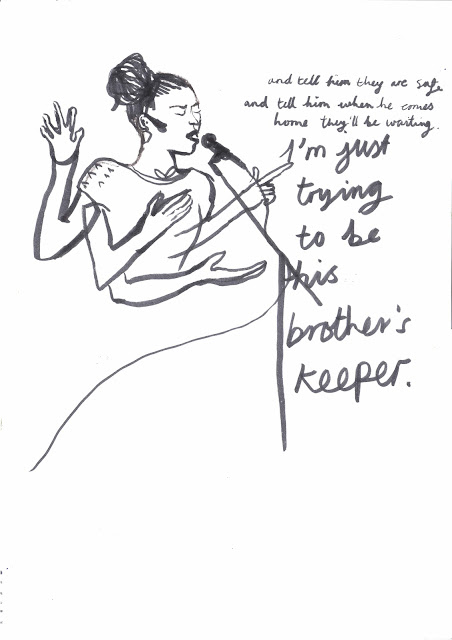 and tell him they are safe
and tell him when he comes
home they'll be waiting.
I'm just
trying
to be
this
brother's
keeper.